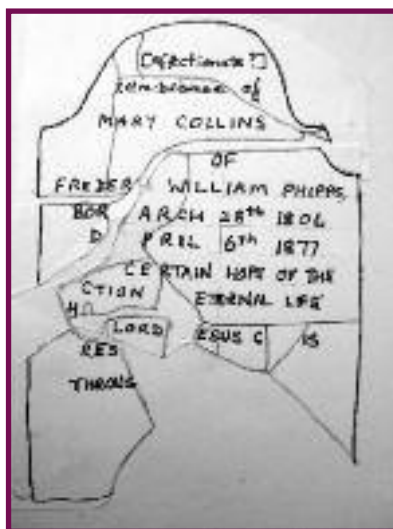 [Afectionate?]
rembrance of
MARY COLLINS
OF
FREDER WILLIAM PHIPPS,
BOR ARCH 28th 1806
D PRIL 6th 1877
CERTAIN HOPE OF THE
CTION ETERNAL LIFE
H
LORD ESUS C IS
RES
THROUG